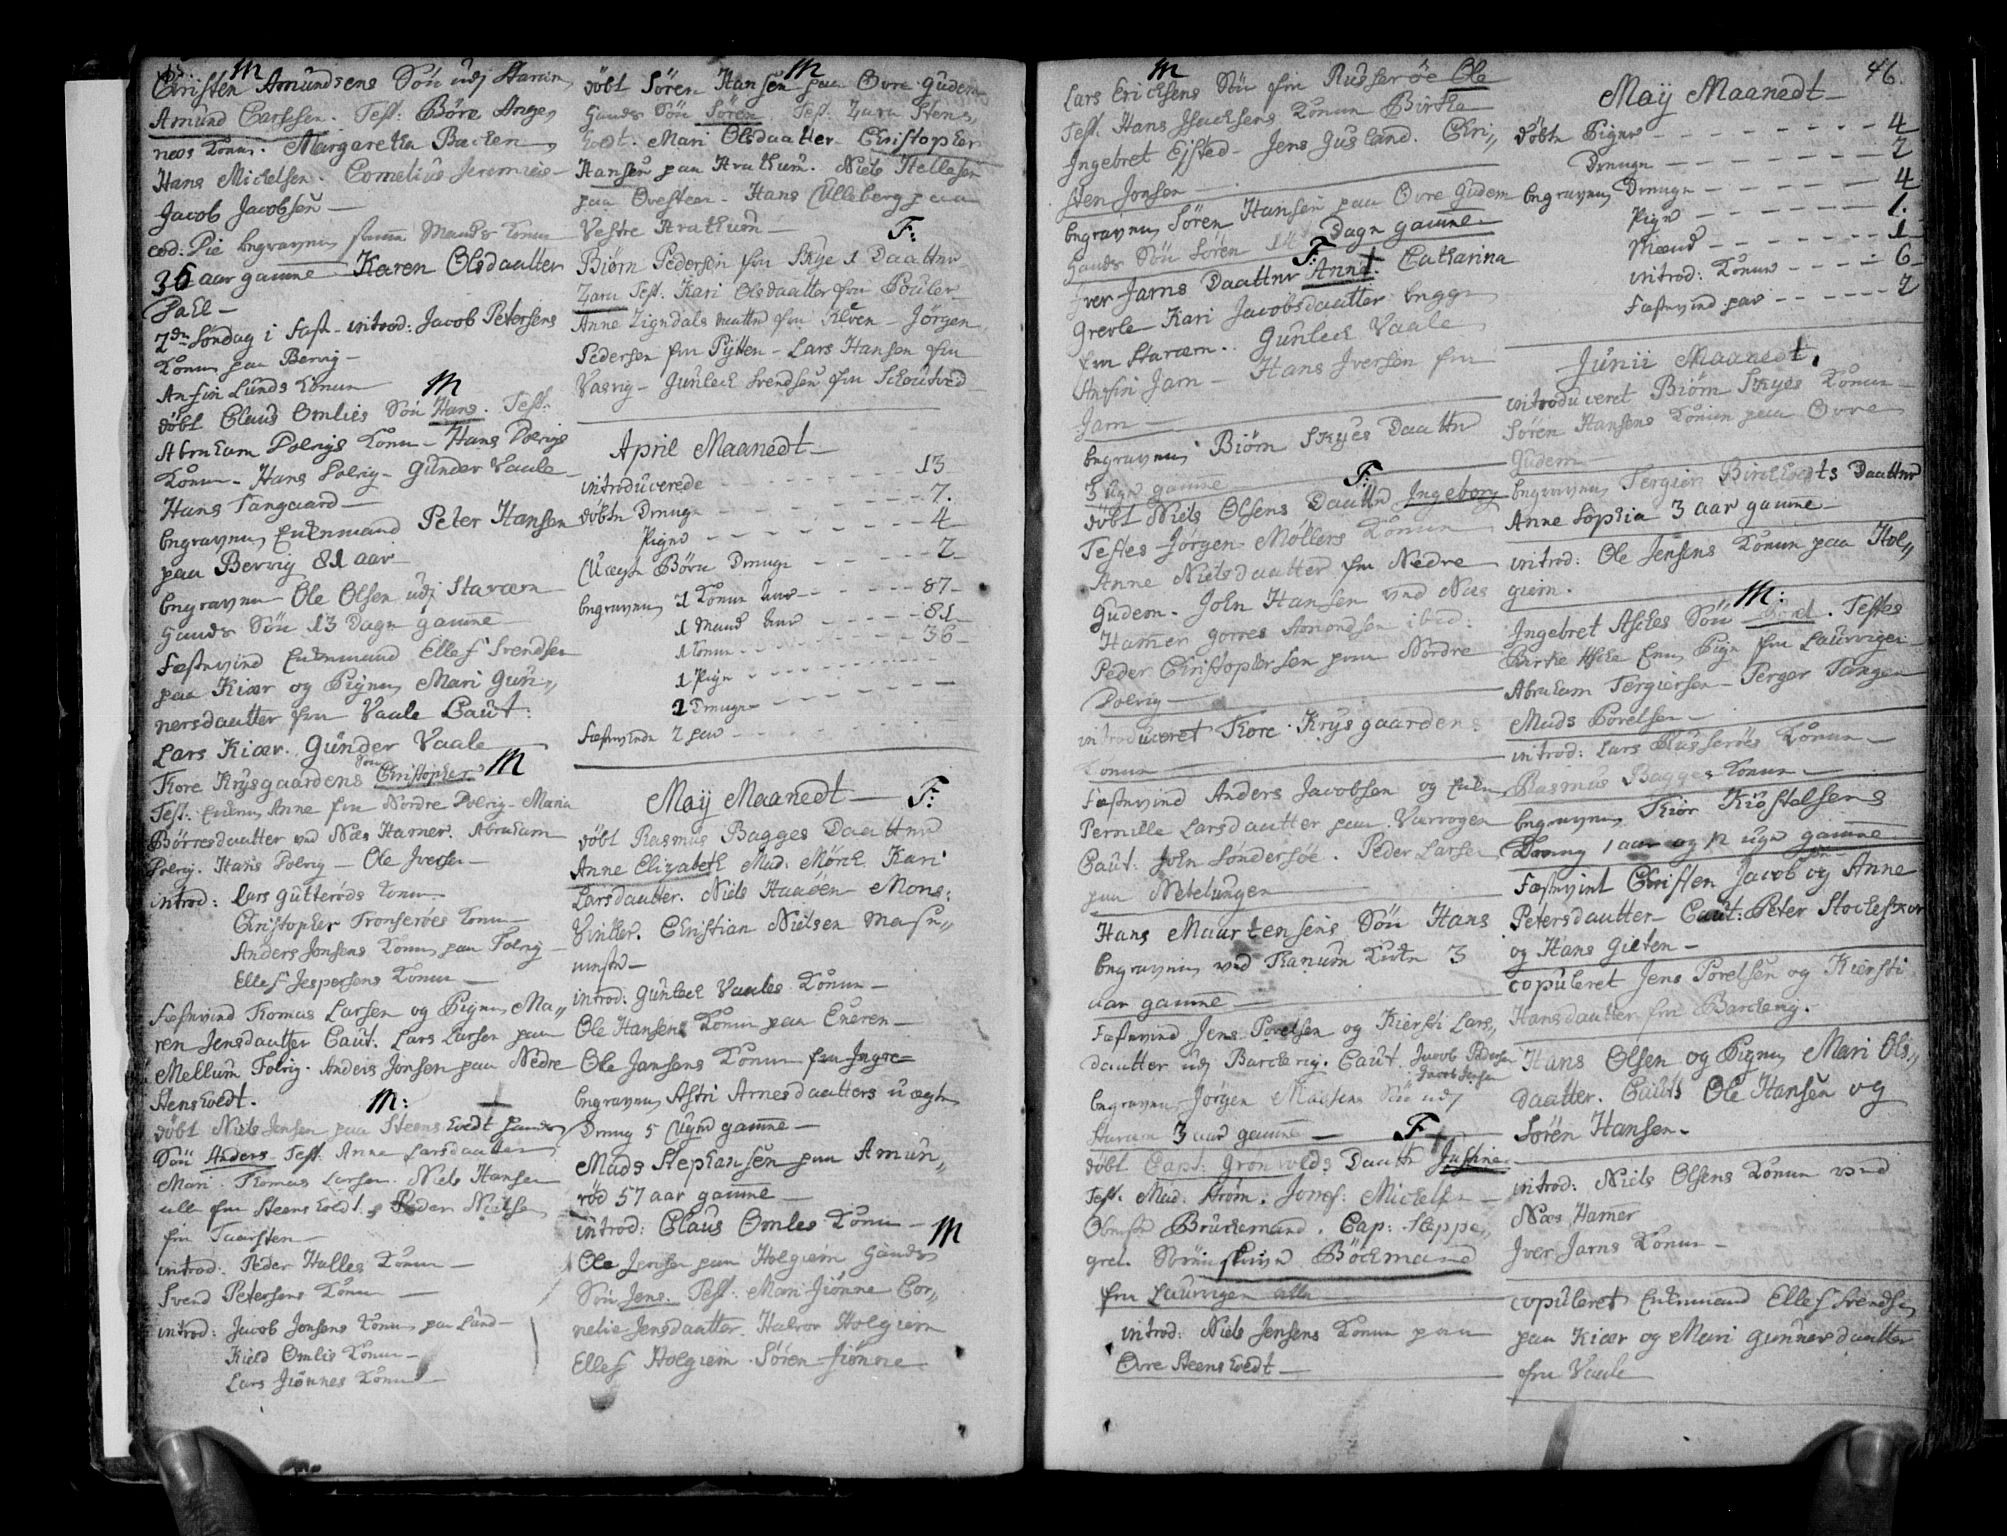 M
Christen Amundsens Søn udj Starærn
Amund Carlssen. Test: Böre Anges
næs Konne. Margaretha Backen
Hans Michelsen. Cornelius Jeremies
Jacob Jacobsen
eod. Die begraven Mands Konne
36 aar gamme Karen Olsdaatter
Pahl
2den Søndag i Fast introd: Jacob Petersens
Konne paa Bervig
Anfin Lunds Konne
M
döbt Claus Omlies Søn Hans. Test:
Abraham Polrigs Konne - Hans Polrigs
Konne - Hans Polrig - Gunder Vaale
Hans Tangaard
begraven Enkemand Peter Hansen
paa Bervig 81 aar
begraven Ole Olsen udj Starærn
hands Søn 13 Dage gamme
Festnvind Enkemand Ellef Svendsen
paa Kiær og Pigen Mari Gun„
nersdaatter fra Vaale Caut:
Lars Kiær. Gunder Vaale
Tore Krysgaardens Søn Christopher M
Test: Anne fra Nordre Polrig - Maria
Börresdaatter ved Næs Hamer. Abraham
Polrig. Hans Polrig - Ole Iversen
introd: Lars Gutterøds Konne
Christopher Tronserøes Konne
Anders Jonsens Konne paa Folrig
Ellef Jespersens Konne
Festnvind Thomas Larsen og Pigen Ma„
ren Jensdaatter Caut. Lars Larsen paa
Mellum Folrig. Anders Jonsen paa Nedre
Stensholdt.
M:
döbt Niels Jensen paa Steensholdt hands
Søn Anders Test. Anne Larsdaatter
Mari. Thomas Larsen. Niels Hansen
alle fra Steensholdt, Peder Nielsen
fra Taarsten
introd: Peder Halles Konne
Svend Petersens Konne
introd: Jacob Jonsens Konne paa Lund
Kield Omlis Konne
Lars Jiønnes Konne
M
döbt Søren Hansen paa Øvre Gudem
hands Søn Søren. Test. Zara Stens„
holdt. Mari Olsdaatter Christopher
Hansen paa Hvathum. Niels Hellesen
paa Ovesteen - Hans Ulleberg paa
Vestre Hvathum
F:
Biørn Pedersen fra Skye 1 Daatter
Zara Test. Kari Olsdaatter fra Pouler
Anne Zigndals daatter fra Kleven - Jørgen
Pedersen fra Pytten - Lars Hansen fra
Vasvig - Gunleck Svendsen fra Schoutved
April Maanedt
introduverede 13
döbte Drenge 7.
Piger 4
Uægte Börn Drenge 2
begraven 1 Konne aar 87
1 Mand aar 81
1 Konne 36
1 Pige
1 Drenge
Festnvinde 2 par
Maÿ Maanedt
F:
döbt Rasmus Bagges Daatter
Anne Elizabeth Mad: Mörch Kari
Larsdaatter. Niels Haaøen Mons:
Vinter. Christian Nielsen
introd: Gunleck Vaales Konne
Ole Hansens Konne paa Eneren
Ole Jansens Konne fra Ingre
begraven Astri Arnesdaatters uægte
Dreng 5 Ugers gamme
Mads Stephansen paa Amun„
röd 57 aar gamme
introd: Claus Omles Konne
M
Ole Jensen paa Holgiem hands
Søn Jens. Test. Mari Jiønne Cor„
nelie Jensdaatter. Halvor Holgiem
Ellef Holgiem. Søren Jiønne
M
Lars Ericksens Søn fra Russerøe Ole
Test. Hans Isachsens Konne Birthe
Ingebret Eifted - Jens Jusland. Chri„
sten Jonsen
begraven Søren Hansen paa Øvre Gudem
hands Søn Søren 14 Dage gamme
F:
Iver Jarns Daatter Anne Catharina
Grevle Kari Jacobsdaatter begge
fra Starærn. Gunleck Vaale
Anfin Jarn - Hans Iversen fra
Jarn
begraven Biørn Skyes Daatter
3 uger gamme
F:
döbt Niels Olsens Daatter Ingeborg
Testes Jørgen Møllers Konne
Anne Nielsdaatter fra Nedre
Gudem. John Hansen ved Næs
Hamer Amondsen ibid:
Peder Christophersen paa Nordre
Polrig
introduveret Tore Krysgaardens
Konne
Festnvind Anders Jacobsen og
Pernille Larsdaatter paa Varrogen
Caut: John Søndersøe. Peder Larsen
paa Netelungen
Hans Maurtensens Søn Hans
begraven ved Thanum Kirke 3
aar gamme
Festnvind Jens Porelsen og Kiersti Lars„
daatter udj Barckerig. Caut. Jacob Pedersen
Jacob Jensen
begraven Jörgen Madsens Søn udj
Starærn 3 aar gamme
F
döbt Capt: Grönvolds Daatter Justine
Test. Mad: Ström. Jomf: Michelsen
Brückemand. Cap: Steppe„
grel. Böckmand
fra Laurvigen alle
introd: Niels Jensens Konne paa
Øvre Steensholdt
46.
Maÿ Maanedt
döbte Piger 4
Drenge 2
begraven Drenge 4
Pige 1.
Mænd 1
introd: Konner 6
Festnvind par 2
Junii Maanedt
introduveret Biørn Skyes Konne
Søren Hansens Konne paa Øvre
Gudem
begraven Tergier Birckholts Daatter
Anne Sophia 3 aar gamme
introd: Ole Jensens Konne paa Hol„
giem.
M:
Ingebret Askes Søn. Testes
Birte Aske Pige fra Laurvigen
Abraham Tergiersen - Perger Tangen
Mads Porelsen
introd: Lars Russerøes Konne
Rasmus Bagges Konne
begraven Tiør Kiøstelsens
Dreng 1 aar og 12 uger gamme
Festnvint Christen Jacobsen og Anne
Petersdaatter - Caut: Peter Stockesxor
og Hans Gieten
copuleret Jens Porelsen og Kiersti
Hansdaatter fra Barckerig.
Hans Olsen og Pigen Mari Ols„
daatter. Cauts Ole Hansen og
Sören Hansen.
introd: Niels Olsens Konne ved
Næs Hamer
Iver Jarns Konne
copuleret Enkemand Ellef Svendsen
paa Kiær og Mari Gunnersdaatter
fra Vaale